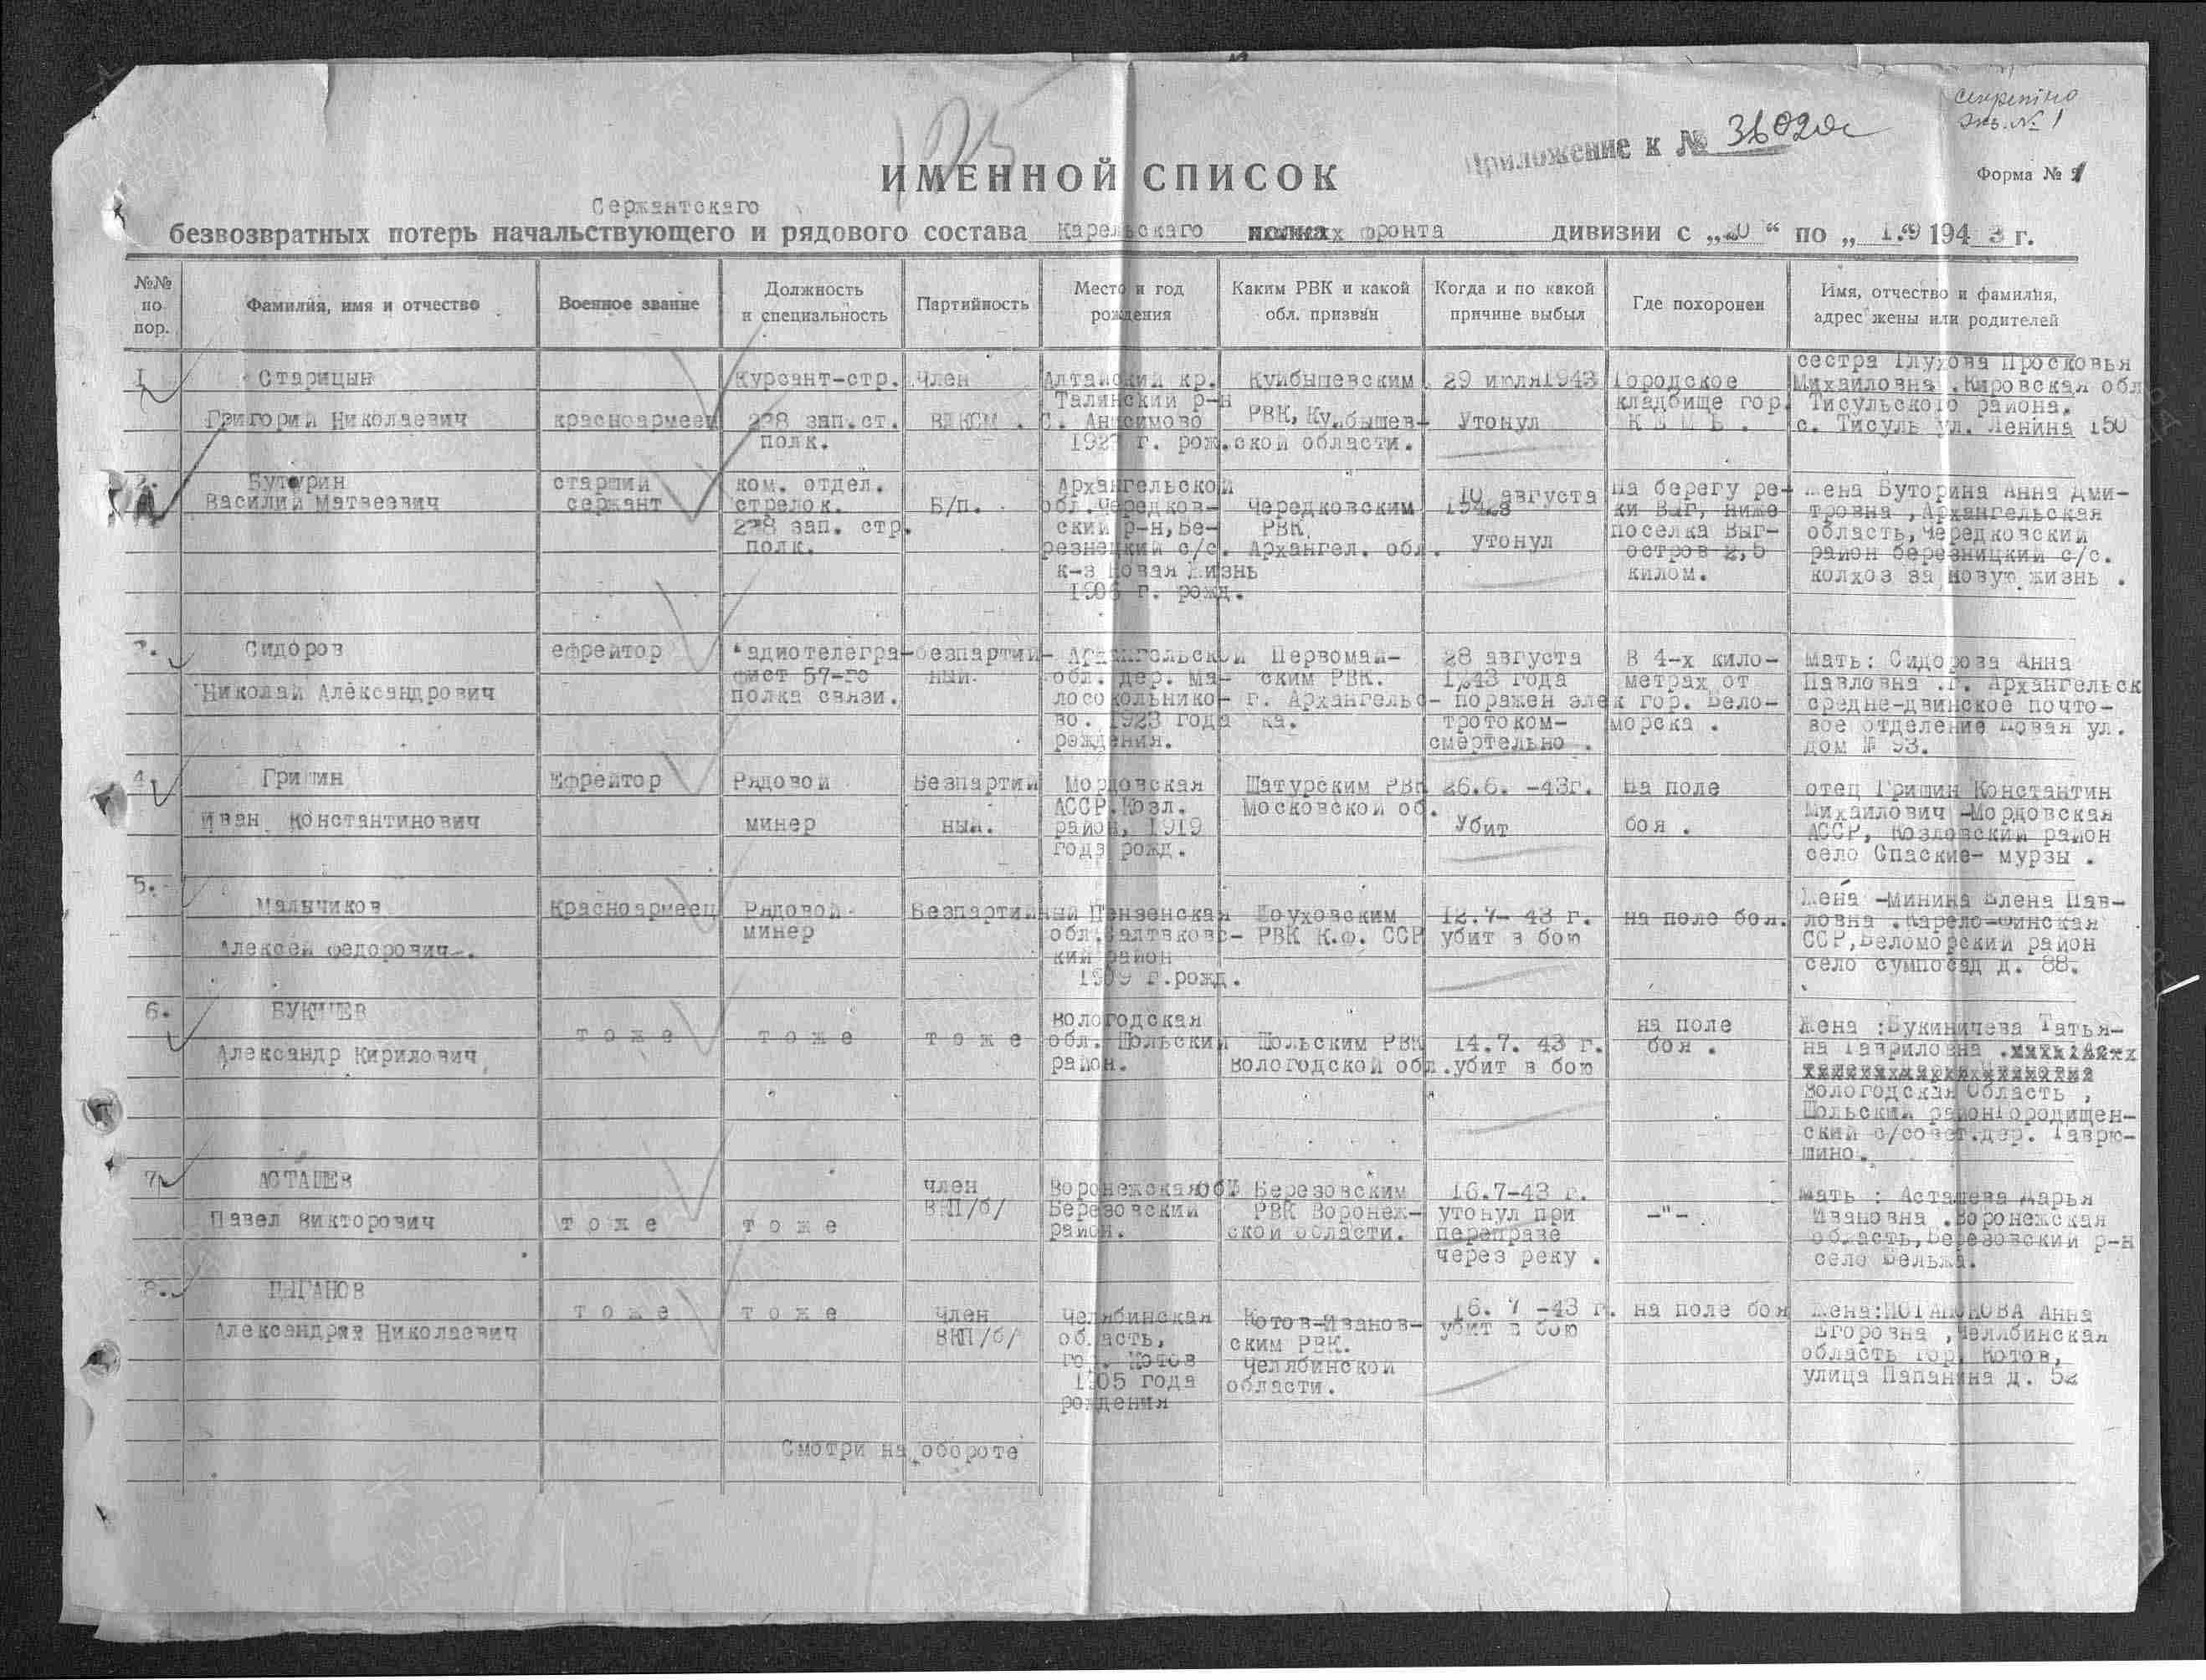 Секретно
Экз. № 1
125
Приложение к № 36020с
ИМЕННОЙ СПИСОК
Форма №
Сержантскаго
безвозвратных потерь начальствующего и рядового состава Карельскаго фронта дивизии с „20“ по „1.9 1943 г.
№№ по пор.
Фамилия, имя и отчество
Военное звание
Должность и специальность
Партийность
Место и год рождения
Каким РВК и какой обл. призван
Когда и по какой причине выбыл
Где похоронен
Имя, отчество и фамилия, адрес жены или родителей
1
Старицын
Григорий Николаевич
красноармеец
Курсант-стр.
238 зап.ст.
полк.
Член
ВЛКСМ .
Алтайский кр.
Талинский р-н
С. Анисимово
г. рож.
Куйбышевским
РВК, Куйбышев-
ской области.
29 июля1943
Утонул
Городское
кладбище гор.
К Е М Ь .
сестра Глухова Просковья
Михайловна .Кировская обл
Тисульского района.
с. Тисуль ул. Ленина 150
2.
Буторин
Василий Матвеевич
старший
сержант
ком. отдел.
стрелок.
238 зап. стр.
полк.
Б/п.
Архангельской
обл.Чередков-
ский р-н,Бе-
резнецкий с/с.
к-з Новая Жизнь
г. рожд.
Чередковским
РВК
Архангел. обл.
10 августа
утонул
На берегу ре-
ки Выг, ниже
поселка Выг-
остров 2,5
килом.
Жена Буторина Анна Дми-
тровна ,Архангельская
область,Чередковский
район березницкий с/с.
колхоз за новую жизнь .
3.
Сидоров
Николай Александрович
ефрейтор
Радиотелегра-
фист 57-го
полка связи.
безпартий-
ный.
Архангельской
обл. дер. Ма-
лосокольнико-
во. 1923 года
рождения.
Первомай-
ским РВК.
г. Архангельс-
ка.
28 августа
1943 года
поражен элек
тротоком-
смертельно .
В 4-х кило-
метрах от
гор. Бело-
морска .
мать: Сидорова Анна
Павловна .г. Архангельск
средне-двинское почто-
вое отделение Новая ул.
дом № 93.
4.
Гришин
Иван Константинович
Ефрейтор
Рядовой
минер
Безпартий
ный.
Мордовская
АССР.Козл.
район, 1919
года рожд.
Шатурским РВК
Московской об.
26.6. -43г.
Убит
На поле
боя .
отец Гришин Константин
Михайлович -Мордовская
АССР, Козловский район
село Спаские- мурзы .
5.
Мальчиков
Алексей Федорович-.
Красноармеец
Рядовой-
минер
Безпартийный
Пензенская
обл.Салтаковс-
кий район
1909 г.рожд.
Лоуховским
РВК К.Ф. ССР
12.7- 43 г.
убит в бою
на поле боя.
Жена -Минина Елена Пав-
ловна .Карело-Финская
ССР,Беломорский район
село сумпосад д. 88.
6.
Александр Кирилович
т о ж е
т о ж е
т о ж е
Вологодская
обл. Шольский
район.
Шольским РВК
Вологодской обл.
14.7. 43 г.
убит в бою
на поле
боя .
Жена :Букиничева Татья-
на Гавриловна .
Вологодская Область ,
Шольский районГородищен-
ский с/совет.дер. Гаврю-
шино.
7.
АСТАШЕВ
Павел Викторович
т о ж е
т о ж е
член
ВКП/б/
Воронежская об
Березовский
район.
Березовским
РВК Воронеж-
ской области.
16.7-43 г.
утонул при
переправе
через реку .
-"-
мать : Асташева Дарья
Ивановна .Воронежская
область,Березовский р-н
село
8.
ЦЫГАНОВ
Александр Николаевич
т о ж е
т о ж е
Член
ВКП/б/
Челябинская
область,
гор. Котов
1905 года
рождения
Котов-Иванов-
ским РВК.
Челябинской
области.
16. 7 -43 г.
убит в бою
на поле боя
Жена: Анна
Егоровна ,Челябинская
область гор. Котов,
улица Папанина д. 52
Смотри на обороте